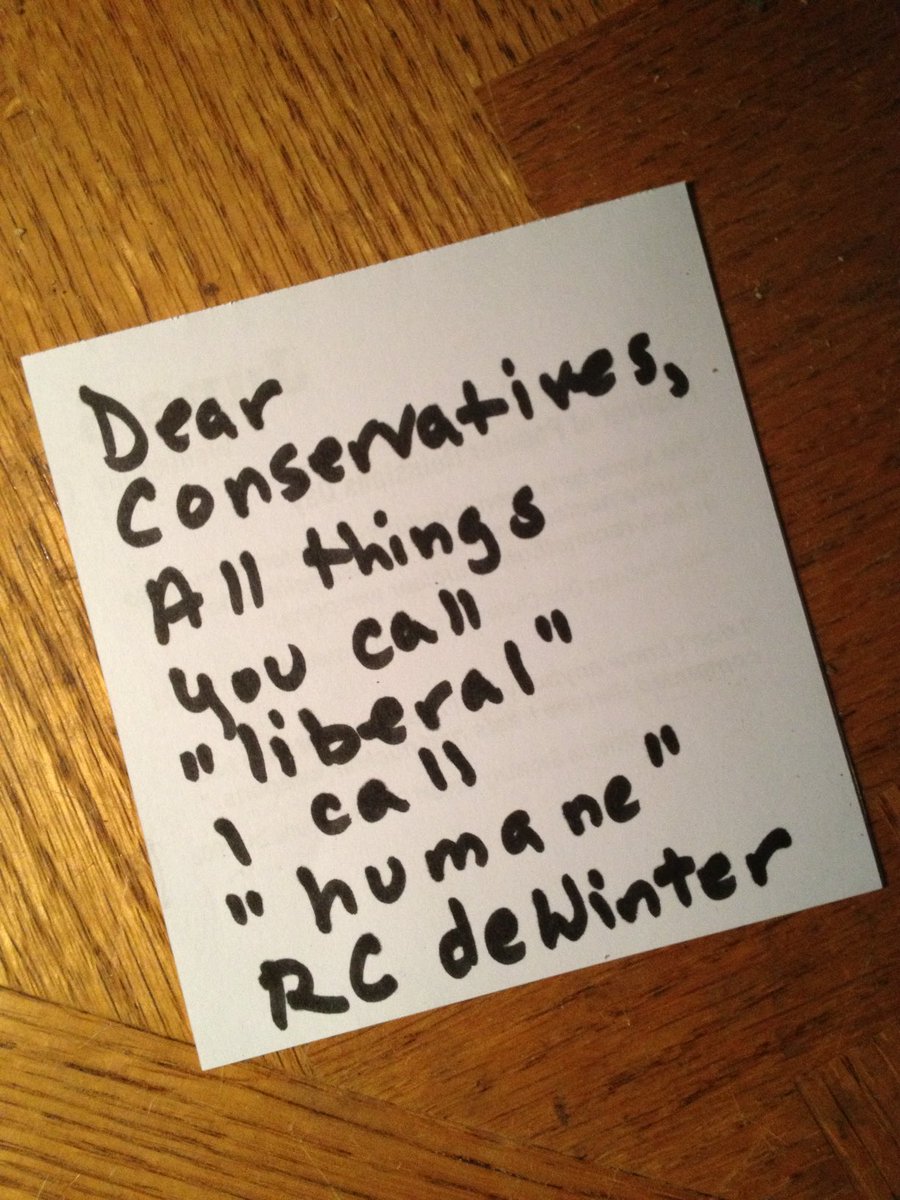 Dear
Conservatives,
All things
you call
"liberal"
I call
"humane"
RC deWinter